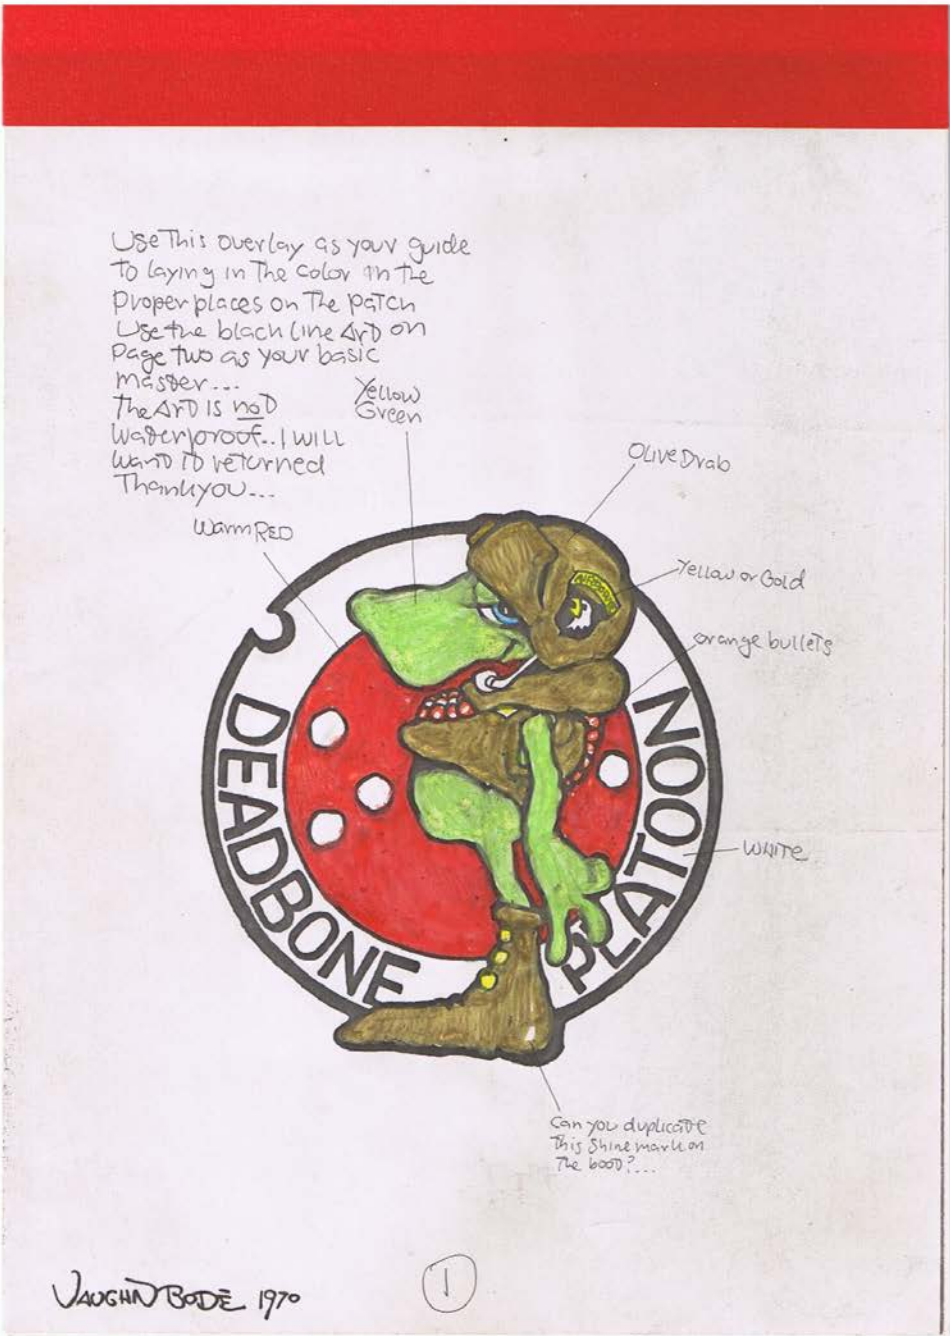 Use This overlay as your guide
To laying in The color in the
Proper places on The patch
Use the black line ArT on
Page two as your basic
master...
The ArT is not
Waterproof.. I WILL
WanT IT returned
Thankyou...
Yellow
Green
OLive Drab
Warm RED
Yellow or Gold
orange bullets
AIRBORNE
DEADBONE
PLATOON
WHITE
Can you duplicate
This Shine mark on
The boot?....
VAUGHN BODE 1970
1